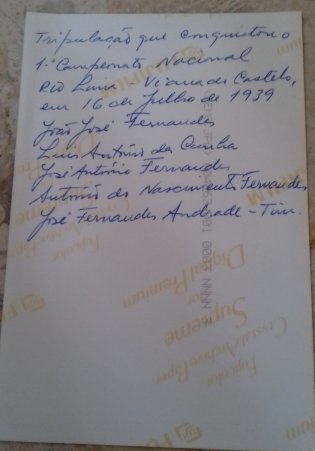 Tripulação que conquistou o
1.º Campeonato Nacional
Rio Lima - Viana do Castelo,
em 16 de Julho de 1939
João José Fernandes
Luis António da Cunha
José António Fernandes
António do Nascimento Fernandes
José Fernandes Andrade - Tim.
Fujicolor
Crystal Archive Paper
Supreme
Digital Premium